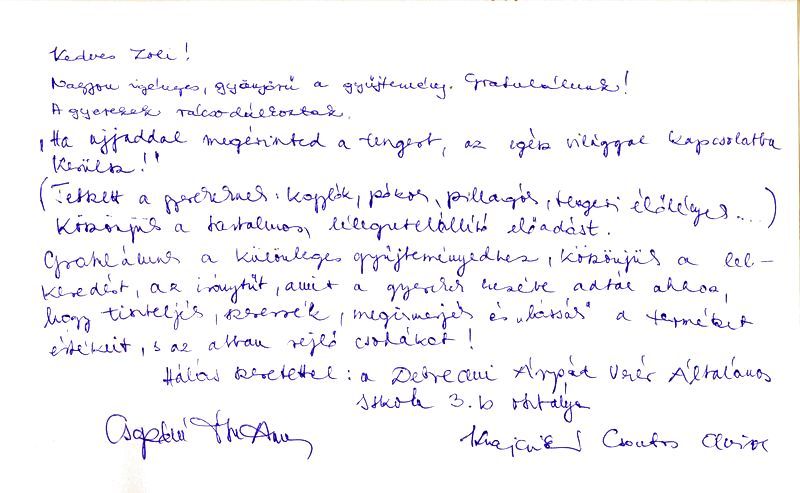 Kedves Zoli!
Nagyon igényes, gyönyörű a gyűjtemény. Gratulálunk!
A gyerekek rácsodálkoztak.
„Ha ujjaddal megérinted a tengert, az egész világgal kapcsolatba
kerülsz!"
(Tetszett a gyerekeknek: kagylók, pókos, pillangós, tengeri élőlényes....)
Köszönjük a tartalmas, lélegzetelállító előadást.
Gratulálunk a különleges gyűjteményedhez, köszönjük a lel-
kesedést, az iránytűt, amit a gyerekek kezébe adtál ahhoz,
hogy tiszteljék, szeressék, megismerjék és „lássák" a természet
értékeit, s az abban rejlő csodákat!
Hálás szeretettel: a Debreceni Árpád Vezér Általános
Iskola 3.b osztálya
Csontos